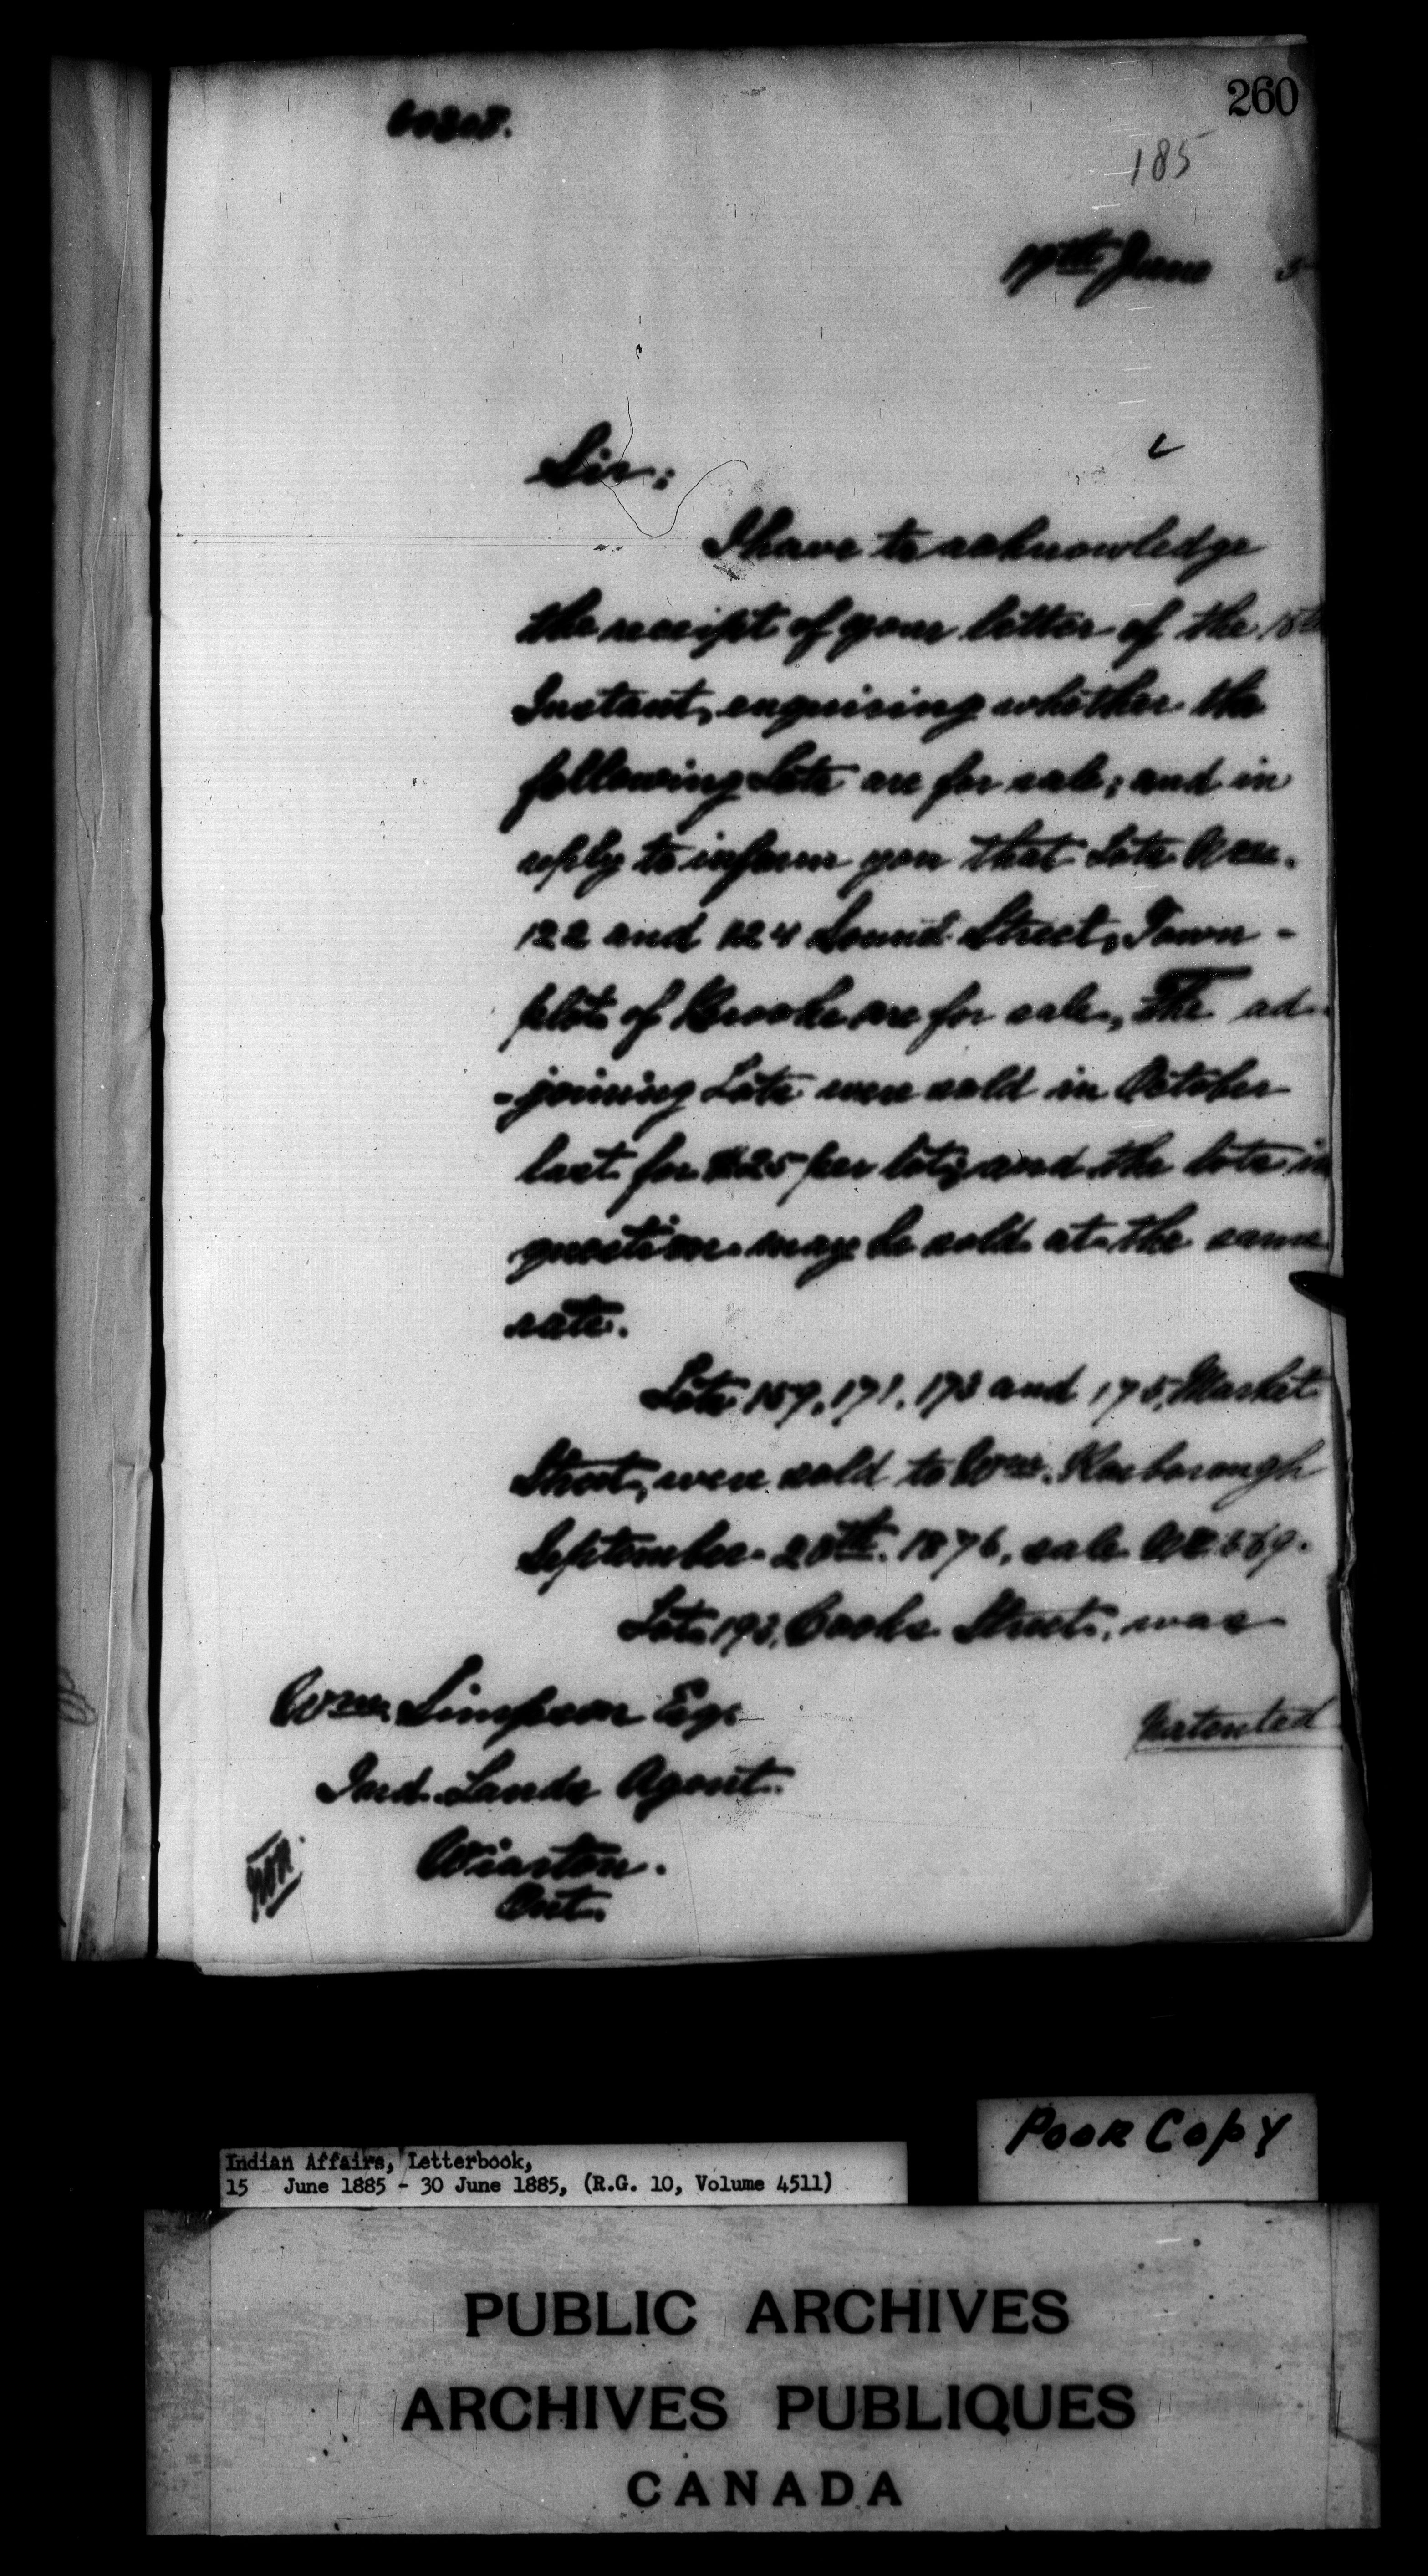 60808.
260
185
19th June 5
Sir:
I have to acknowledge
the receipt of your letter of the 15th
Instant, enquiring whether the
following Lots are for sale; and in
reply to inform you that Lots Nos.
122 and 124 Sound Street, Town-
plot of Brooke are for sale, The ad-
-joining Lots were sold in October
last for $25 per lot; and the lots in
question may be sold at the same
rate.
Lots 171, 173 and 175, Market
Street, were sold to Wm.
September 28th. 1876, sale
Lot 193, Cooke Street, was
Patented
Wm. Simpson Esq.
Ind. Lands Agent.
Wiarton.
Ont.
Poor Copy
Indian Affairs, Letterbook,
15 June 1885 - 30 June 1885, (R.G. 10, Volume 4511)
PUBLIC ARCHIVES
ARCHIVES PUBLIQUES
CANADA